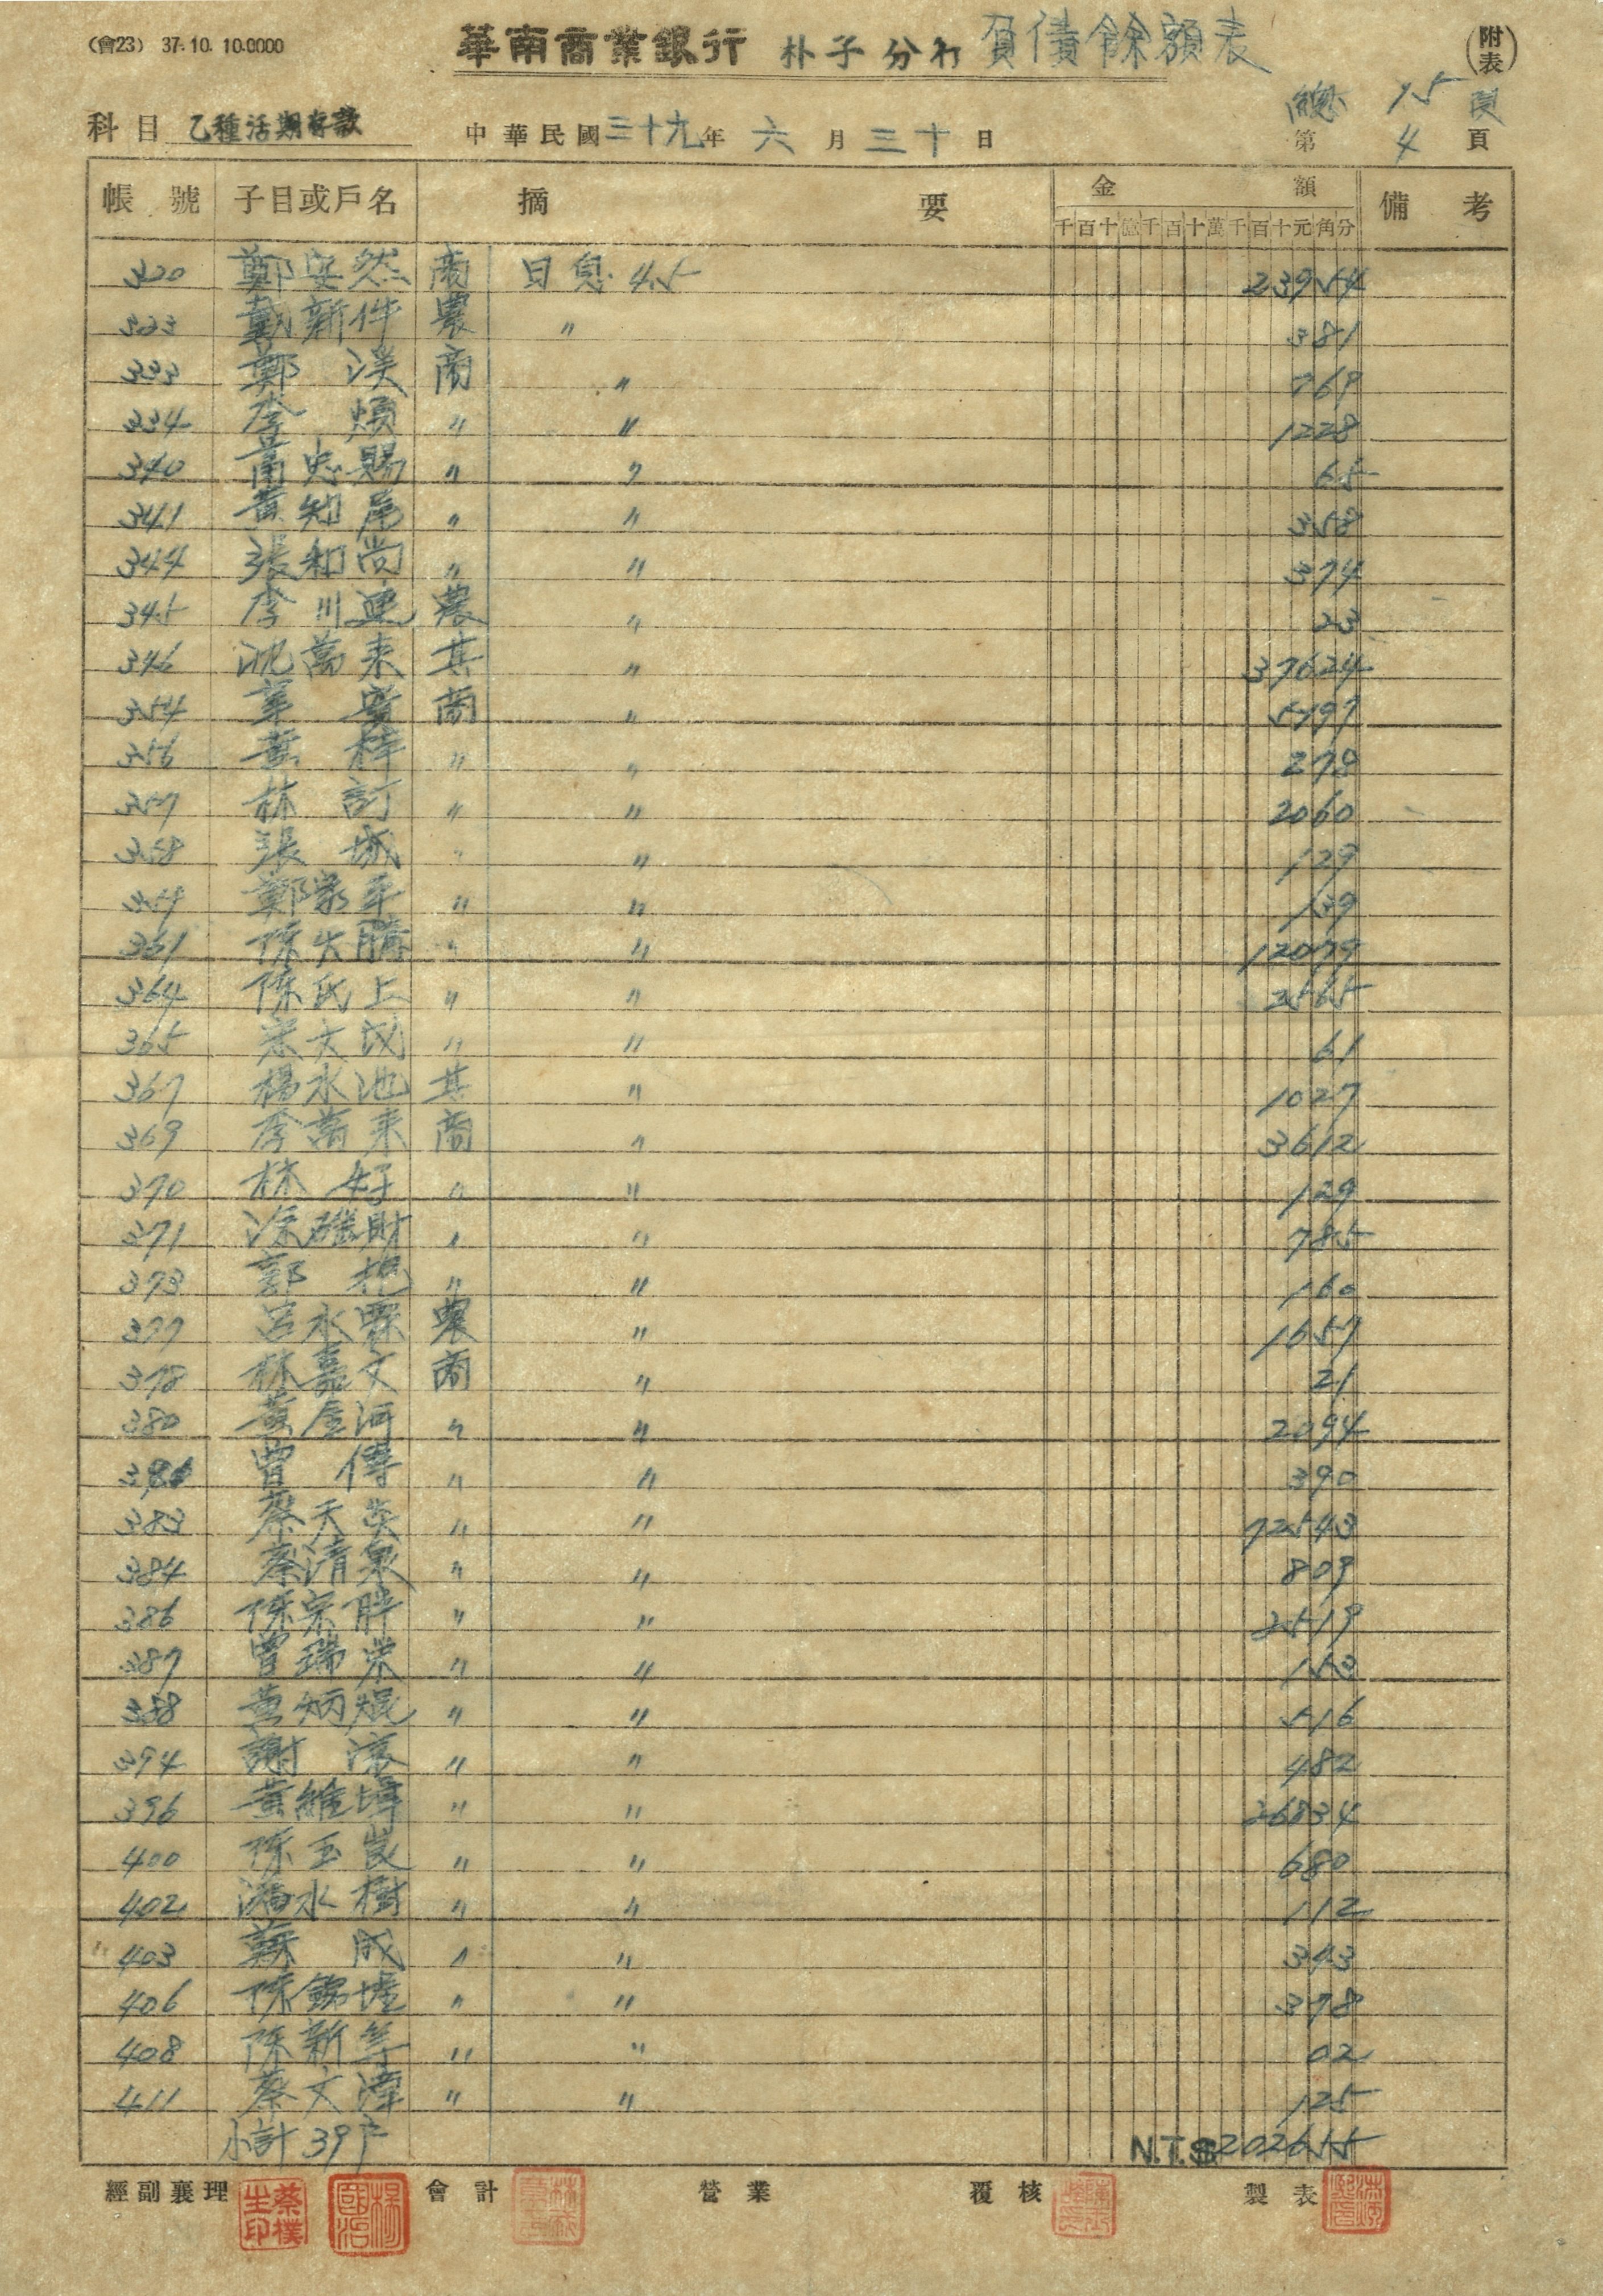 (會23) 37.10.10.0000
華南商業銀行 朴子分行 負債餘額表
(附表)
總 15 頁
科目 乙種活期存款 中華民國三十九年六月三十日 第 4 頁
帳號 子目或戶名 摘要 金額 備考
千百十億千百十萬千百十元角分
320 鄭安然 商 日息 4.5 23954
323 戴新件 農 〃 381
333 鄭 渼 商 〃 769
334 李 〃 〃 1228
340 黃忠賜 〃 〃 65
341 黃知尾 〃 〃 358
344 張和尚 〃 〃 374
345 李川連 農 〃 23
346 沈萬来 其 〃 37624
354 商 〃 5797
356 黃 梓 〃 〃 278
357 林 訂 〃 〃 2060
358 張 城 〃 〃 129
359 鄭 〃 〃 139
361 陳 〃 〃 12079
364 陳氏上 〃 〃 2565
365 〃 〃 61
367 楊水池 其 〃 1027
369 李萬来 商 〃 3612
370 林 好 〃 〃 129
371 涂磯財 〃 〃 785
373 郭 〃 〃 160
377 呂水 農 〃 1657
378 林嘉文 商 〃 21
380 黃金河 〃 〃 2094
曾 傳 〃 〃 390
383 蔡天 〃 〃 72543
384 蔡清泉 〃 〃 809
386 陳宗胖 〃 〃 2519
387 曾瑞栄 〃 〃 153
388 黃炳焜 〃 〃 516
394 謝 〃 〃 482
396 黃維 〃 〃 26834
400 陳玉崑 〃 〃 680
402 潘水樹 〃 〃 112
403 蘇 成 〃 〃 343
406 陳錫 〃 〃 378
408 陳新 〃 〃 02
411 蔡文 〃 〃 125
小計 39戶 N.T.$202655
經副襄理 會計 營業 覆核 製表
蔡樸生印
楊國治